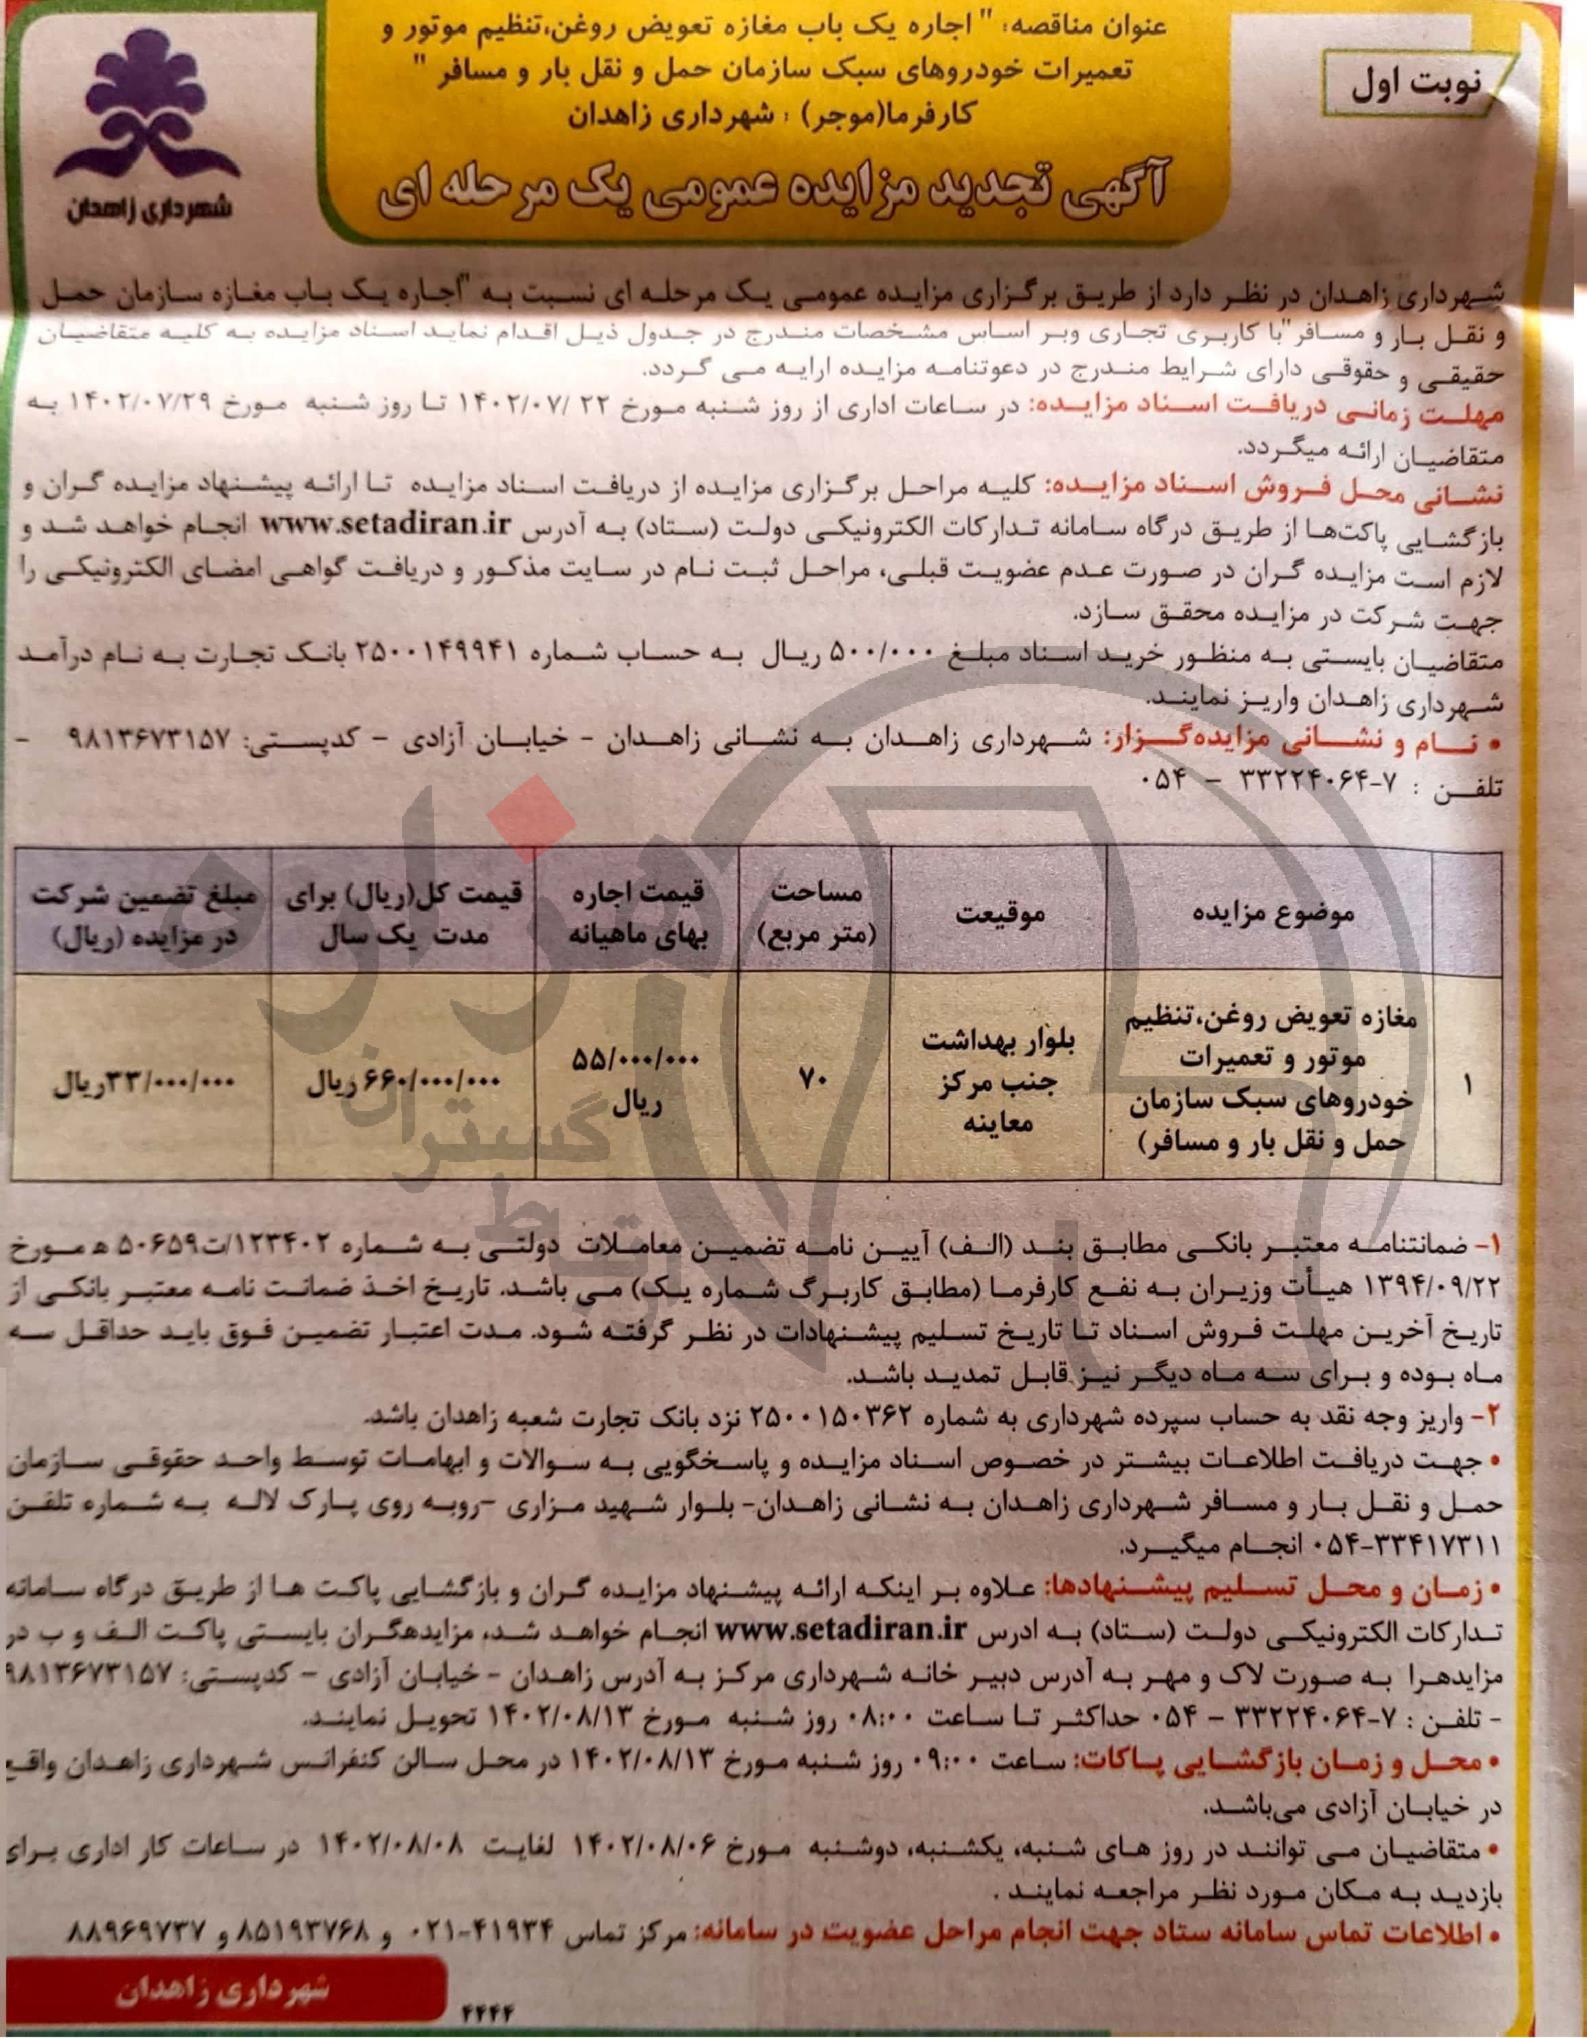 نوبت اول
عنوان مناقصه: " اجاره یک باب مغازه تعویض روغن،تنظیم موتور و
تعمیرات خودروهای سبک سازمان حمل و نقل بار و مسافر "
کارفرما(موجر) : شهرداری زاهدان
آگهی تجدید مزایده عمومی یک مرحله ای
شهرداری زاهدان
شهرداری زاهدان در نظر دارد از طریق برگزاری مزایده عمومی یک مرحله ای نسبت به "اجاره یک باب مغازه سازمان حمل
و نقل بار و مسافر"با کاربری تجاری وبر اساس مشخصات مندرج در جدول ذیل اقدام نماید اسناد مزایده به کلیه متقاضیان
حقیقی و حقوقی دارای شرایط مندرج در دعوتنامه مزایده ارایه می گردد.
مهلت زمانی دریافت اسناد مزایده: در ساعات اداری از روز شنبه مورخ ۲۲ /۱۴۰۲/۰۷ تا روز شنبه مورخ ۱۴۰۲/۰۷/۲۹ به
متقاضیان ارائه میگردد.
نشانی محل فروش اسناد مزایده: کلیه مراحل برگزاری مزایده از دریافت اسناد مزایده تا ارائه پیشنهاد مزایده گران و
بازگشایی پاکت‌ها از طریق درگاه سامانه تدارکات الکترونیکی دولت (ستاد) به آدرس www.setadiran.ir انجام خواهد شد و
لازم است مزایده گران در صورت عدم عضویت قبلی، مراحل ثبت نام در سایت مذکور و دریافت گواهی امضای الکترونیکی را
جهت شرکت در مزایده محقق سازد.
متقاضیان بایستی به منظور خرید اسناد مبلغ ۵۰۰/۰۰۰ ریال به حساب شماره ۲۵۰۰۱۴۹۹۴۱ بانک تجارت به نام درآمد
شهرداری زاهدان واریز نمایند.
• نام و نشانی مزایده‌گزار: شهرداری زاهدان به نشانی زاهدان - خیابان آزادی - کدپستی: ۹۸۱۳۶۷۳۱۵۷ -
تلفن : ۷-۳۳۲۲۴۰۶۴ - ۰۵۴
موضوع مزایده
موقیعت
مساحت
(متر مربع)
قیمت اجاره
بهای ماهیانه
قیمت کل(ریال) برای
مدت یک سال
مبلغ تضمین شرکت
در مزایده (ریال)
۱
مغازه تعویض روغن،تنظیم
موتور و تعمیرات
خودروهای سبک سازمان
حمل و نقل بار و مسافر)
بلوار بهداشت
جنب مرکز
معاینه
۷۰
۵۵/۰۰۰/۰۰۰
ریال
۶۶۰/۰۰۰/۰۰۰ ریال
۳۳/۰۰۰/۰۰۰ریال
۱- ضمانتنامه معتبر بانکی مطابق بند (الف) آیین نامه تضمین معاملات دولتی به شماره ۱۲۳۴۰۲/ت۵۰۶۵۹ ه مورخ
۱۳۹۴/۰۹/۲۲ هیأت وزیران به نفع کارفرما (مطابق کاربرگ شماره یک) می باشد. تاریخ اخذ ضمانت نامه معتبر بانکی از
تاریخ آخرین مهلت فروش اسناد تا تاریخ تسلیم پیشنهادات در نظر گرفته شود. مدت اعتبار تضمین فوق باید حداقل سه
ماه بوده و برای سه ماه دیگر نیز قابل تمدید باشد.
۲- واریز وجه نقد به حساب سپرده شهرداری به شماره ۲۵۰۰۱۵۰۳۶۲ نزد بانک تجارت شعبه زاهدان باشد.
• جهت دریافت اطلاعات بیشتر در خصوص اسناد مزایده و پاسخگویی به سوالات و ابهامات توسط واحد حقوقی سازمان
حمل و نقل بار و مسافر شهرداری زاهدان به نشانی زاهدان- بلوار شهید مزاری -روبه روی پارک لاله به شماره تلفن
۰۵۴-۳۳۴۱۷۳۱۱ انجام میگیرد.
• زمان و محل تسلیم پیشنهادها: علاوه بر اینکه ارائه پیشنهاد مزایده گران و بازگشایی پاکت ها از طریق درگاه سامانه
تدارکات الکترونیکی دولت (ستاد) به ادرس www.setadiran.ir انجام خواهد شد، مزایدهگران بایستی پاکت الف و ب در
مزایدهرا به صورت لاک و مهر به آدرس دبیر خانه شهرداری مرکز به آدرس زاهدان - خیابان آزادی - کدپستی: ۹۸۱۳۶۷۳۱۵۷
- تلفن : ۷-۳۳۲۲۴۰۶۴ - ۰۵۴ حداکثر تا ساعت ۰۸:۰۰ روز شنبه مورخ ۱۴۰۲/۰۸/۱۳ تحویل نمایند.
• محل و زمان بازگشایی پاکات: ساعت ۰۹:۰۰ روز شنبه مورخ ۱۴۰۲/۰۸/۱۳ در محل سالن کنفرانس شهرداری زاهدان واقع
در خیابان آزادی می‌باشد.
• متقاضیان می توانند در روز های شنبه، یکشنبه، دوشنبه مورخ ۱۴۰۲/۰۸/۰۶ لغایت ۱۴۰۲/۰۸/۰۸ در ساعات کار اداری برای
بازدید به مکان مورد نظر مراجعه نمایند .
• اطلاعات تماس سامانه ستاد جهت انجام مراحل عضویت در سامانه: مرکز تماس ۴۱۹۳۴-۰۲۱ و ۸۵۱۹۳۷۶۸ و ۸۸۹۶۹۷۳۷
شهرداری زاهدان
۴۴۴۴